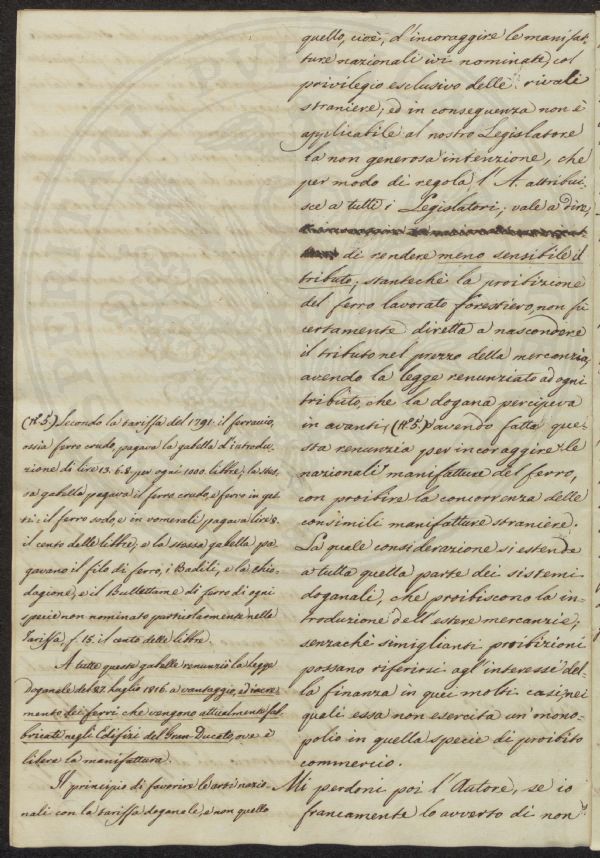 quello, cioè, d'incoraggire le manifat-
ture nazionali ivi nominate, col
privilegio esclusivo delle rivali
straniere; ed in conseguenza non è
applicabile al nostro Legislatore
la non generosa intenzione, che
per modo di regola, l'A. attribui-
sce a tutti i Legislatori; vale a dire,
di rendere meno sensibile il
tributo; stantechè la proibizione
del ferro lavorato forestiero, non fù
certamente diretta a nascondere
il tributo nel prezzo della mercanzia,
avendo la legge renunziato ad ogni
tributo, che la dogana percipeva
in avanti, (N.° 5.) avendo fatta que-
sta renunzia per incoraggire le
nazionali manifatture del ferro,
con proibire la concorrenza delle
consimili manifatture straniere.
La quale considerazione si estende
a tutta quella parte dei sistemi
doganali, che proibiscono la in-
troduzione dell'estere mercanzie;
senzachè simiglianti proibizioni
possano riferirsi agl'interessi del-
la finanza in quei molti casi, nei
quali essa non esercita un mono-
polio in quella specie di proibito
commercio.
Mi perdoni poi l'Autore, se io
francamente lo avverto di non
(N.° 5.) Secondo la tariffa del 1791. il ferraccio,
ossia ferro crudo, pagava la gabella d'introdu-
zione di lire 13. 6. 8. per ogni 1000. libbre; la stes-
sa gabella pagava il ferro crudo, e ferro in get-
ti: il ferro sodo, e in vomerali pagava lire 8.
il cento delle libbre; e la stessa gabella pa-
gavano il filo di ferro, i Badili, e la chio-
dagione; e il Bullettame di ferro di ogni
specie non nominato particolarmente nella
Tariffa £. 15. il cento delle libbre.
A tutte queste gabelle renunziò la legge
Doganale del 27. Luglio 1816. a vantaggio, ed incre-
mento dei ferri che vengono attualmente fab-
bricati negli Edifizi del Gran-Ducato, ove è
libera la manifattura.
Il principio di favorire le arti nazio-
nali con la tariffa doganale, e non quello